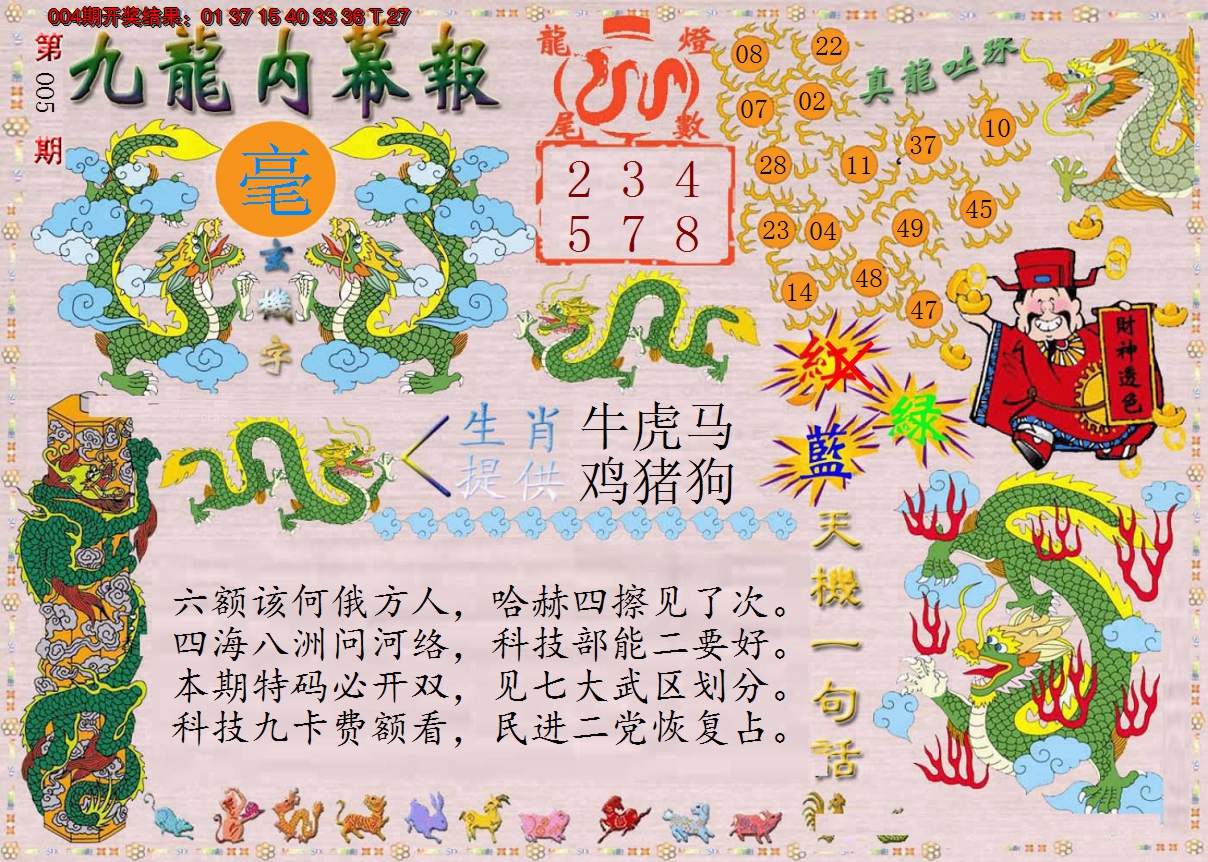 004期开奖结果：01 37 15 40 33 36 T 27
第005期
九龍内幕報
毫
玄機字
龍燈
尾數
2 3 4
5 7 8
真龍吐珠
08 22
07 02
28 11 37 10
23 04 49 45
14 48 47
財神透色
紅
綠
藍
生肖 牛虎马
提供 鸡猪狗
天機一句话
六额该何俄方人，哈赫四擦见了次。
四海八洲问河络，科技部能二要好。
本期特码必开双，见七大武区划分。
科技九卡费额看，民进二党恢复占。